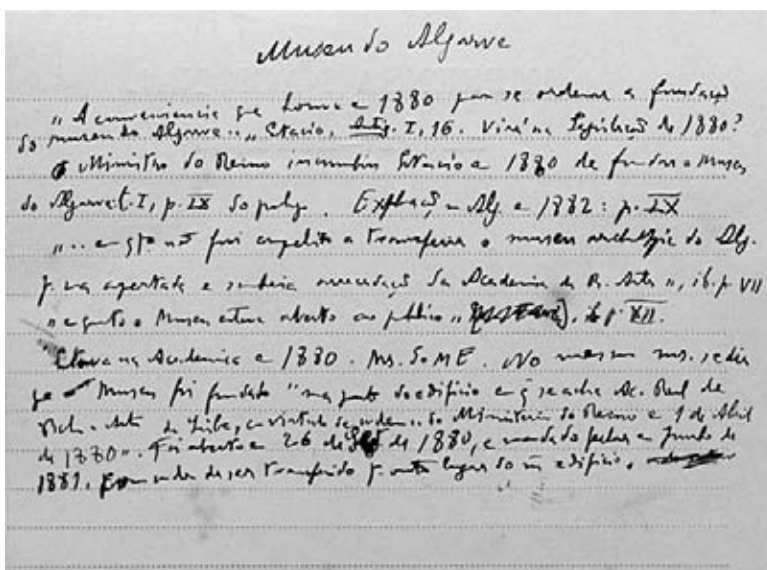 Museu do Algarve
"A conveniencia que houve e 1880 par se ordenar a fundaçã
do museu do Algarve", Estacio, Antig. I, 16. Virá na Legislaçã de 1880?
O Ministro do Reino incumbiu Estacio e 1880 de fundar o Museu
do Algarve t. I, p. IX do prolgo. Exploraçã Alg e 1882: p. IX
"... e qto nã fui compelido a transferir o museu archeologico do Alg.
p. uma apertada e sombria arrecadaçã da Academia de B. Artes", ib. p. VII
"e quanto o Museu esteve aberto ao publico", ib. p. XII.
Estava na Academia e 1880. Ms. do ME. No mesmo ms. se diz
que o Museu foi fundado "na parte do edificio e q̃ se acha Ac. Real de
Bel. Artes de Lisba, em virtude da ordem do Ministerio do Reino e 1 de Abril
de 1880". Foi aberto a 26 de de 1880, e mandado fechar e Junho de
1881, transferido p. outro lugar do m edificio.